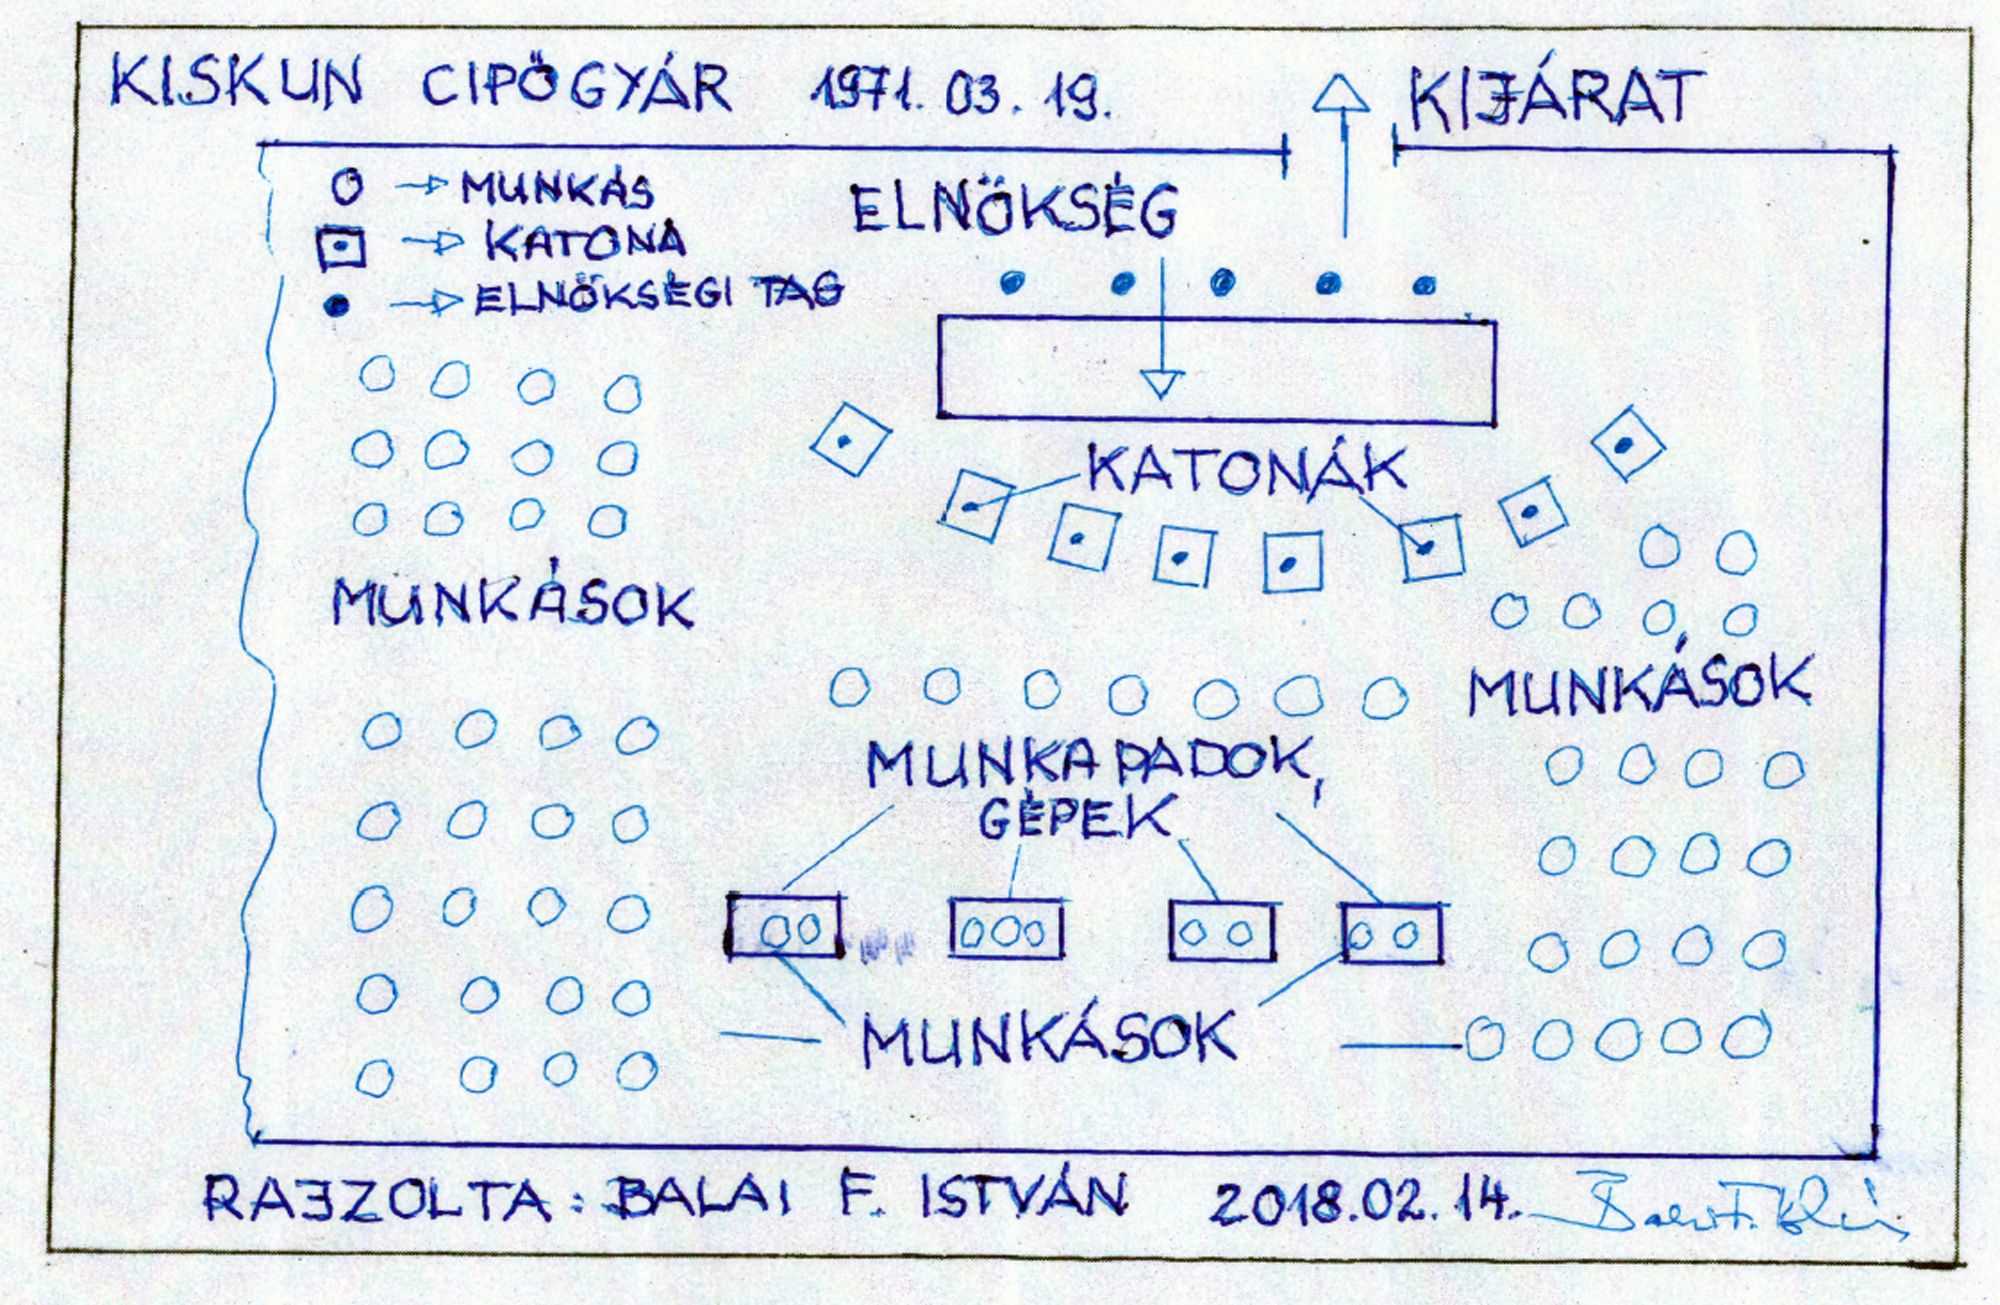 KISKUN CIPŐGYÁR 1971. 03. 19.
KIJÁRAT
MUNKÁS
KATONA
ELNÖKSÉGI TAG
ELNÖKSÉG
KATONÁK
MUNKÁSOK
MUNKÁSOK
MUNKAPADOK,
GÉPEK
MUNKÁSOK
RAJZOLTA: BALAI F. ISTVÁN 2018.02.14.